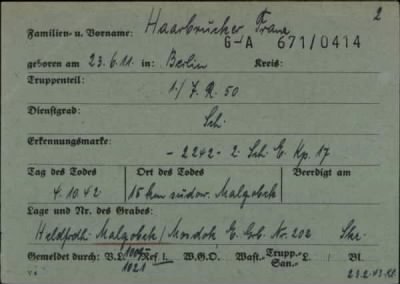 2
Familien- u. Vorname: Haarbrücker Franz
G-A 671/0414
geboren am 23.6.11. in: Berlin Kreis:
Truppenteil: 1./J.R. 50
Dienstgrad: Sch.
Erkennungsmarke: - 2242 - 2. Sch. E. Kp. 17
Tag des Todes Ort des Todes Beerdigt am
4.10.42 15 km südow. Malgobek
Lage und Nr. des Grabes:
Heldfrdh. Malgobek/ Mosdok, E. Grb. Nr. 202
Gemeldet durch: V.L. 1009/1021 Ref. 1. W.G.O. Wast.- Trupp.- San.- L. Bl.
23.2.43